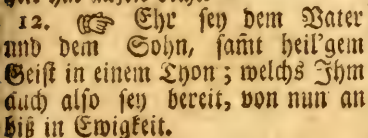 12. ☞ Ehr sey dem Vater
und dem Sohn, samt heil'gem
Geist in einem Thon; welchs Ihm
auch also sey bereit, von nun an
biß in Ewigkeit.